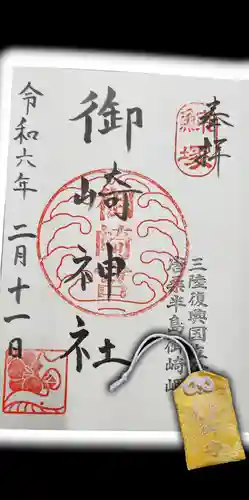 奉拝
三陸復興国立
唐桑半島御崎岬
御崎神社
令和六年
二月十一日